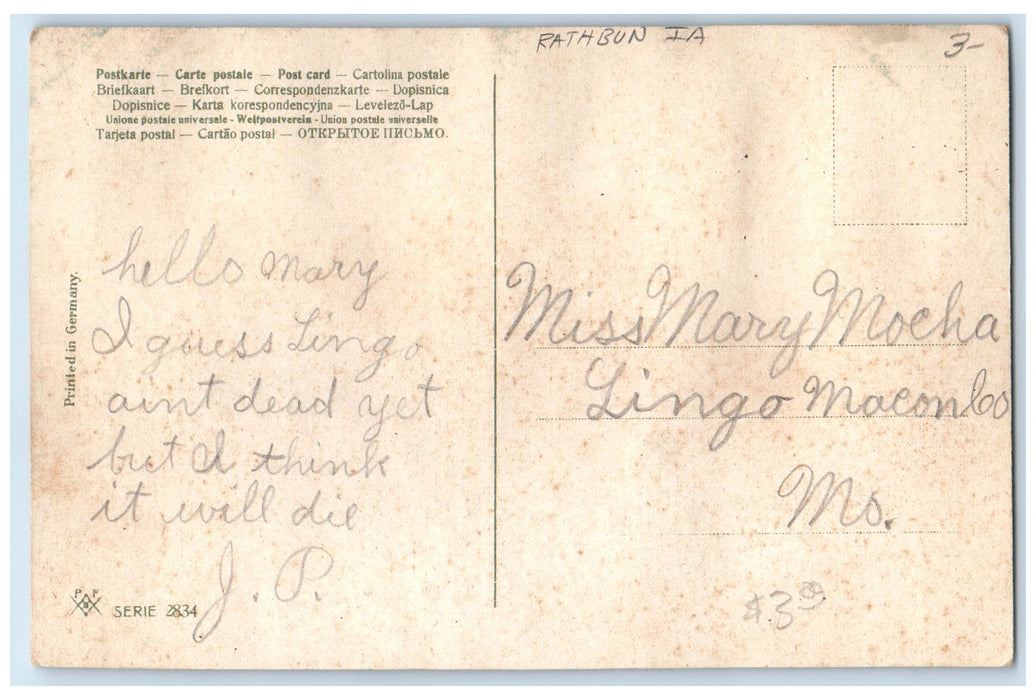 RATHBUN IA
3-
Postkarte — Carte postale — Post card — Cartolina postale
Briefkaart — Brefkort — Correspondenzkarte — Dopisnica
Dopisnice — Karta korespondencyjna — Levelező-Lap
Unione postale universale - Weltpostverein - Union postale universelle
Tarjeta postal — Cartão postal — ОТКРЫТОЕ ПИСЬМО.
Printed in Germany.
hello Mary
I guess Lingo
aint dead yet
but I think
it will die
J. P.
P F B
SERIE 2834
Miss Mary Mocha
Lingo Macon Co
Mo.
$3.00